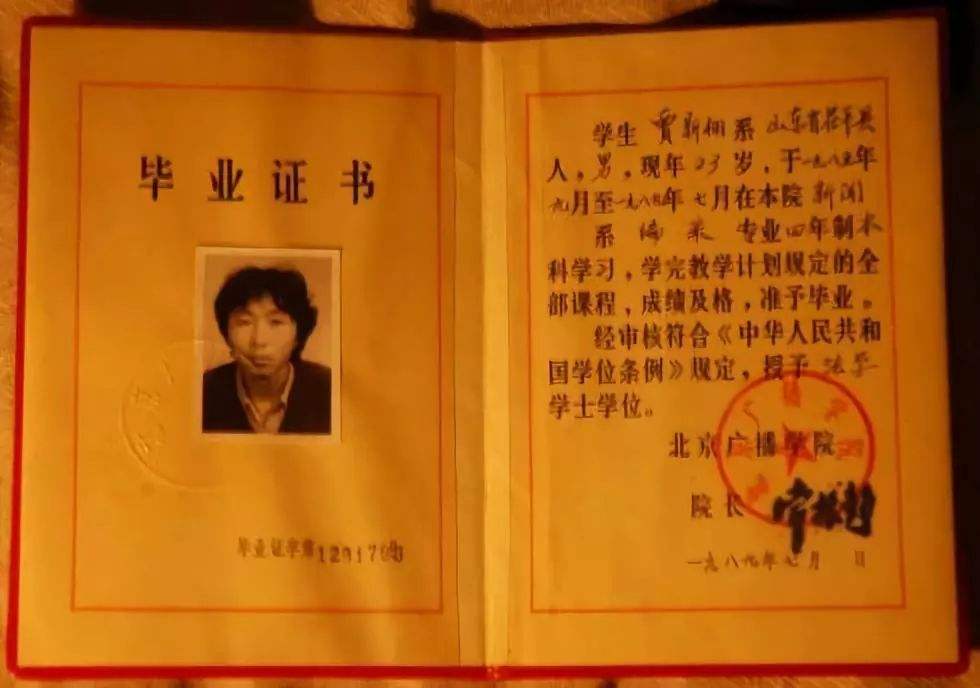 毕业证书
毕业证字第
学生 贾新栅 系 山东省茌平县
人，男，现年 23 岁，于一九八五年
九月至一九八九年 七月在本院 新闻
系 编采 专业四年制本
科学习，学完教学计划规定的全
部课程，成绩及格，准予毕业。
经审核符合《中华人民共和
国学位条例》规定，授予 法学
学士学位。
北京广播学院
院长
一九八九年七月 日